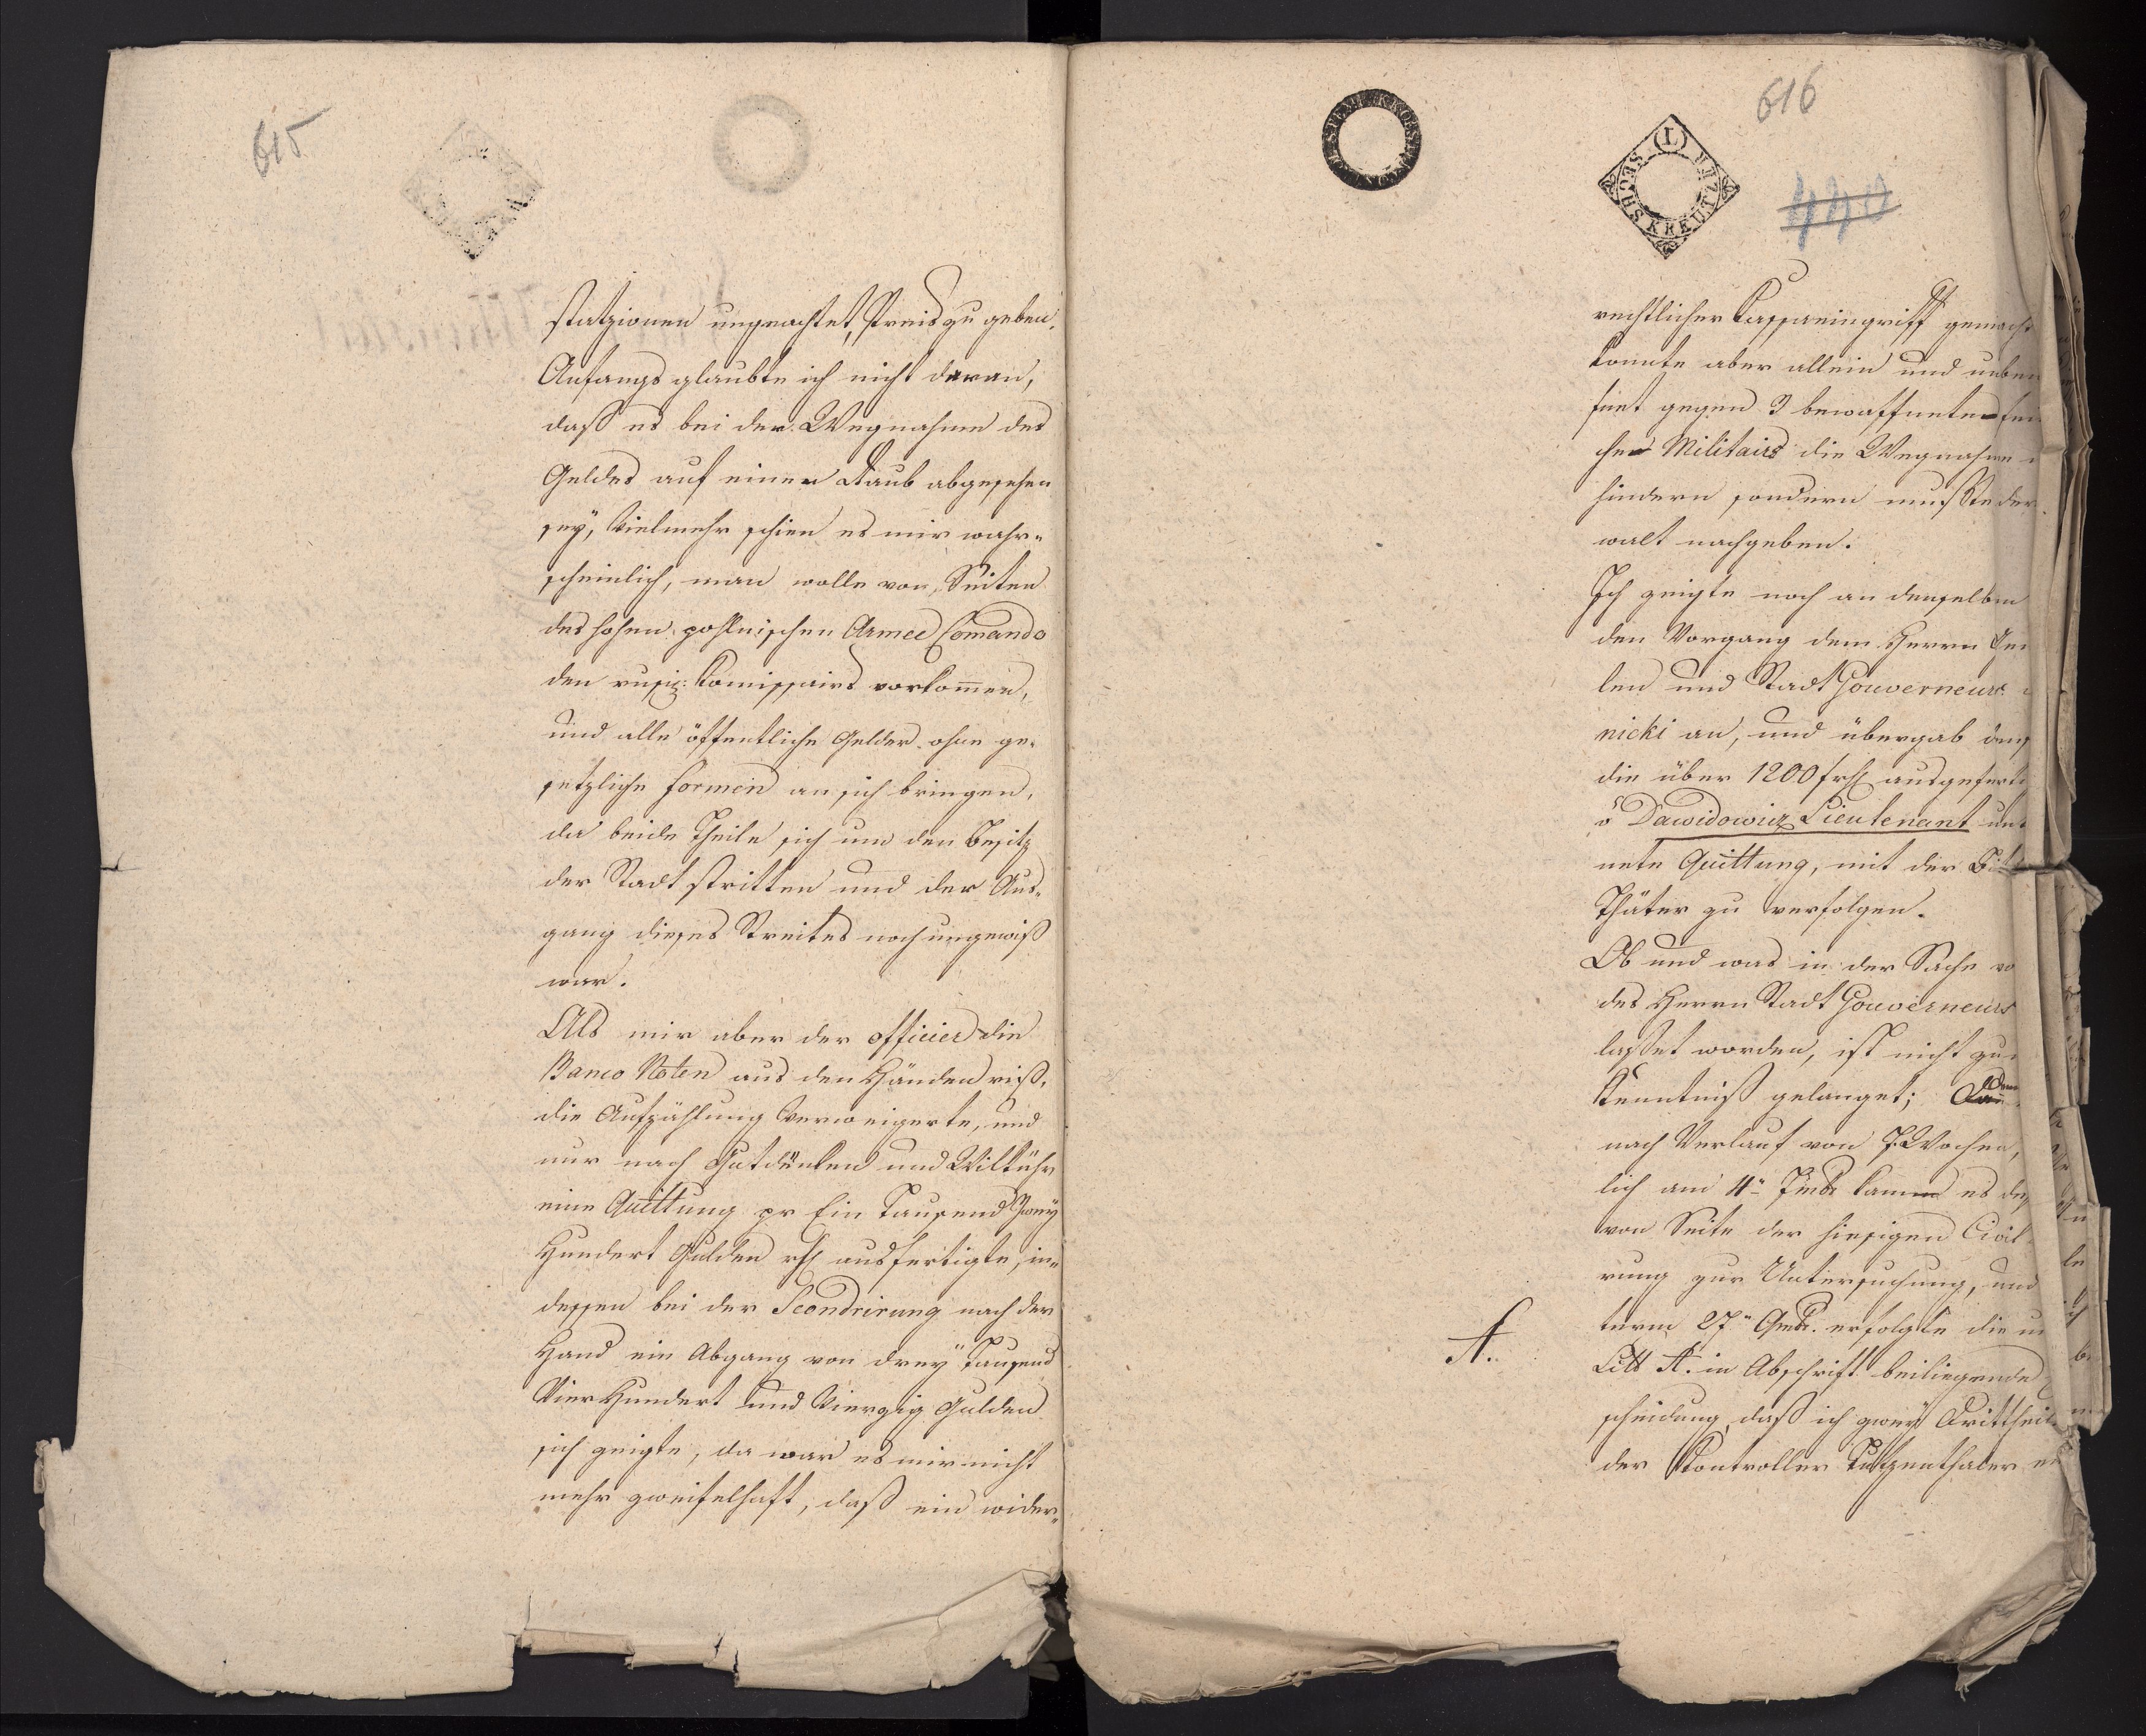 615
statzionen ungeachtet, Preis zu geben.
Anfangs glaubte ich nicht daran,
daß es bei der Wegnahme des
Geldes auf einen Raub abgesehen
sey, Vielmehr schien es mir wahr-
scheinlich, man wolle von Seiten
des hohen pohlnischen Armee Comando
den russ: Komissairs vorkommen,
und alle öffentliche Gelder ohne ge-
setzliche formen an sich bringen,
da beide Theile sich um den Besitz
der Stadt stritten und der Aus-
gang dieses Streites noch ungewiß
war.
Als mir aber der officier die
Banco Noten aus den Händen riß,
die Aufzählung verweigerte, und
nur nach Gutdünken und Wilkühr
eine Quittung pr Ein Tausend Zwey
Hundert Gulden rh ausfertigte, in-
dessen bei der Scondrirung nach der
Hand ein Abgang von drey Tausend
Vier Hundert und Vierzig Gulden
sich zeigte, da war es mir nicht
mehr zweifelhaft, daß ein wider-
616
(L)
SECHS KREUTZER
440
rechtlicher Cassaeingriff gemacht
konnte aber allein und unbe
fnet gegen 3 bewaffneten
chen Militairs die Wegnahme
hindern sondern mußte der
walt nachgeben.
Ich zeigte noch an demselben
den Vorgang dem Herrn Ge
len und Stadt Gouverneur
nicki an, und übergab dem
die über 1200 frh ausgeferti
Dawidowicz Lieutenant un
nete Quittung, mit der Bit
Thäter zu verfolgen.
Ob und was in der Sache vo
des Herrn Stadt Gouverneurs
lasset worden, ist nicht zu
Kenntniß gelanget;
nach Verlauf von 7 Wochen,
lich am 4n 7mbr kamm es
von Seite der hiesigen Civil
rung zur Untersuchung, und
term 27n 9mbr. erfolgte die
A.
Litt A. in Abschrift beiliegende
scheidung, daß ich zwey Drittheil
der Kontrollor Lutzenthaler